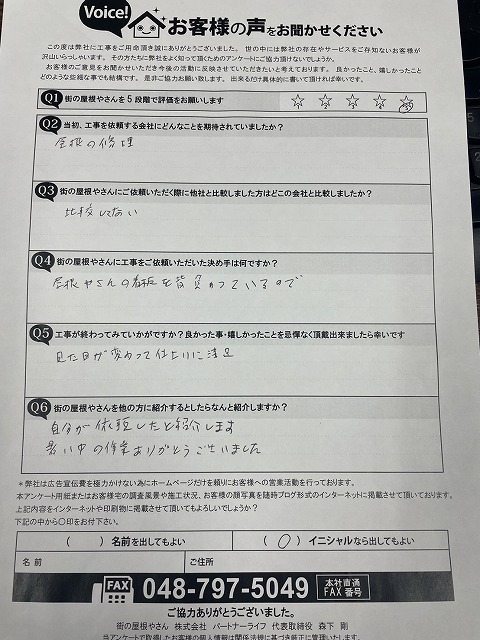 Voice! お客様の声をお聞かせください
この度は弊社に工事をご用命頂き誠にありがとうございました。世の中には弊社の存在やサービスをご存知ないお客様が
沢山いらっしゃいます。その方たちに弊社をよく知って頂くためのアンケートにご協力頂けないでしょうか。
お客様のご意見をお聞かせいただき今後の活動に反映させていただきたいと考えております。良かったこと、嬉しかったこと
どのような些細な事でも結構です。是非ご協力お願い致します。出来るだけ具体的に書いて頂ければ幸いです。
Q1 街の屋根やさんを5段階で評価をお願いします ☆ ☆ ☆ ☆ ☆
Q2 当初、工事を依頼する会社にどんなことを期待されていましたか?
屋根の修理
Q3 街の屋根やさんにご依頼いただく際に他社と比較しました方はどこの会社と比較しましたか?
比較してない
Q4 街の屋根やさんに工事をご依頼いただいた決め手は何ですか?
屋根やさんの看板を背負っているので
Q5 工事が終わってみていかがですか?良かった事・嬉しかったことを忌憚なく頂戴出来ましたら幸いです
見た目が変わって仕上りに満足
Q6 街の屋根やさんを他の方に紹介するとしたらなんと紹介しますか?
自分が依頼したと紹介します
暑い中の作業ありがとうございました
*弊社は広告宣伝費を極力かけない為にホームページだけを頼りにお客様への営業活動を行っております。
本アンケート用紙またはお客様宅の調査風景や施工状況、お客様の顔写真を随時ブログ形式のインターネットに掲載させて頂いております。
上記内容をインターネットや印刷物に掲載させて頂いてもよろしいでしょうか?
下記の中から〇印をお付下さい。
( ) 名前を出してもよい ( 〇 ) イニシャルなら出してもよい
名前 ご住所
FAX 048-797-5049 本社直通 FAX番号
ご協力ありがとうございました。
街の屋根やさん 株式会社 パートナーライフ 代表取締役 森下 剛
当アンケートで取得したお客様の個人情報は関係法規に基づき厳正に管理いたします。